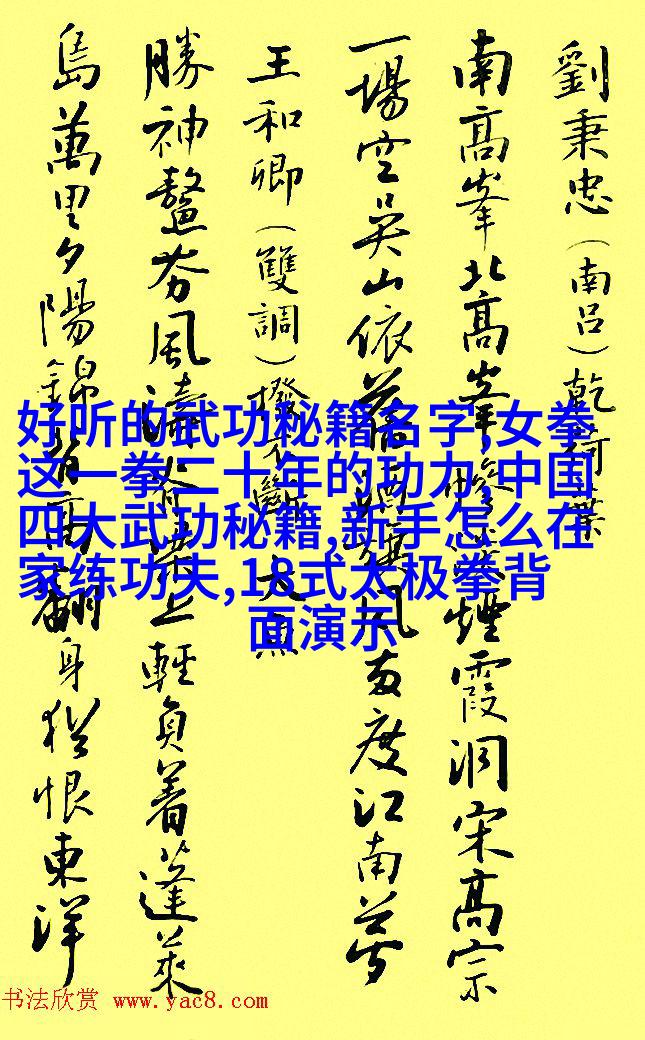 劉秉忠（南呂）乾荷葉
南高峯北高峯慘淡煙霞洞宋高宗
一場空吳山依舊酒旗風兩度江南夢
王和卿（雙調）撥不斷 大魚
勝神鼇夯風濤脊梁上輕負着蓬萊
島萬里夕陽錦背高翻身猶恨東洋
好听的武功秘籍名字,女拳
这一拳二十年的功力,中国
四大武功秘籍,新手怎么在
家练功夫,18式太极拳背
面演示
书法欣赏 www.yac8.com